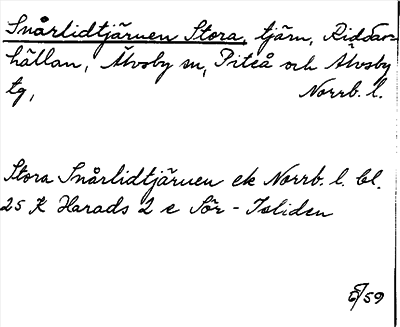 Snårlidtjärnen Stora, tjärn, Riddar-
hällan, Älvsby sn, Piteå och Älvsby
tg, Norrb. l.
Stora Snårlidtjärnen ek Norrb. l. bl.
25 K Harads 2 e Sör-Isliden
/59